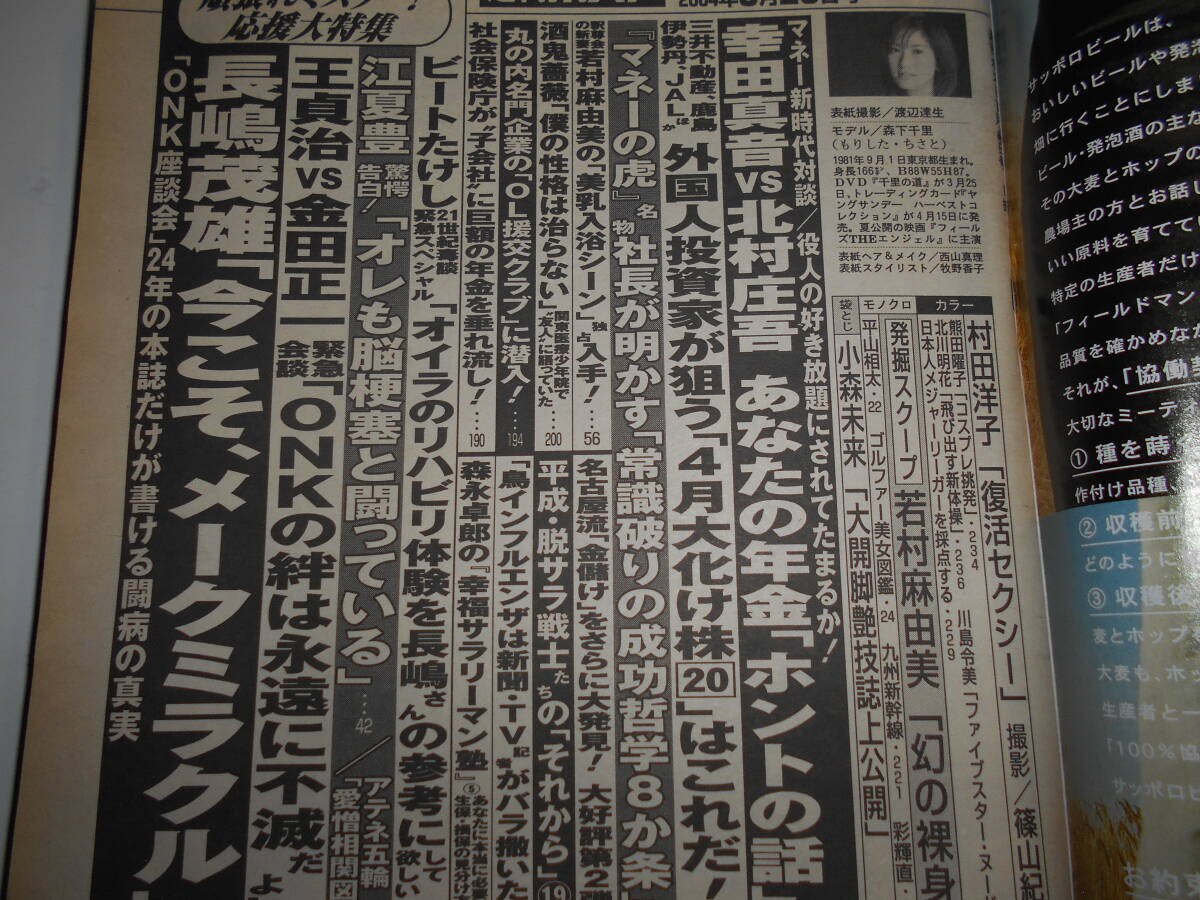 頑張れミスター！
応援大特集
2004年
表紙撮影／渡辺達生
モデル／森下千里
（もりした・ちさと）
1981年9月1日東京都生まれ。
身長166㌢、B88W55H87。
DVD『千里の道』が3月25
日、トレーディングカード『ヤ
ングサンデー ハーベストコ
レクション』が4月15日に発
売。夏公開の映画『フィール
ズTHEエンジェル』に主演
表紙ヘア＆メイク／西山真理
表紙スタイリスト／牧野香子
カラー
村田洋子「復活セクシー」撮影／篠山紀
熊田曜子「コスプレ挑発」・234 川島令美「ファイブスター・ヌード
北川明花「飛び出す新体操」・236
日本人メジャーリーガーを採点する・229
モノクロ
発掘スクープ 若村麻由美「幻の裸身
平山相太・22 ゴルファー美女図鑑・24 九州新幹線・221 彩輝直・
袋とじ
小森未来「大開脚艶技誌上公開」
マネー新時代対談／役人の好き放題にされてたまるか！
幸田真音vs北村庄吾 あなたの年金「ホントの話」
三井不動産、鹿島
伊勢丹、JALほか
外国人投資家が狙う「4月大化け株20」はこれだ！
『マネーの虎』名物社長が明かす「常識破りの成功哲学8か条
釈尊会若村麻由美の「美乳入浴シーン」独占入手！…56
の新妻
名古屋流「金儲け」をさらに大発見！ 大好評第2弾
酒鬼薔薇「僕の性格は治らない」関東医療少年院で“友人”に語っていた…200
平成・脱サラ戦士たちの「それから」⑲
丸の内名門企業の「OL援交クラブ」に潜入！…194
「鳥インフルエンザは新聞・TV記者がバラ撒いた
社会保険庁が“子会社”に巨額の年金を垂れ流し！…190
森永卓郎の『幸福サラリーマン塾』⑤あなたに本当に必要
生保・損保の見分け方
ビートたけし 21世紀毒談
緊急スペシャル「オイラのリハビリ体験を長嶋さんの参考にして欲しい
江夏豊 驚愕告白！「オレも脳梗塞と闘っている」…42／アテネ五輪
「愛憎相関図
王貞治vs金田正一 緊急会談「ONKの絆は永遠に不滅だよ
長嶋茂雄「今こそ、メークミラクル
「ONK座談会」24年の本誌だけが書ける闘病の真実
サッポロビールは、
おいしいビールや発
畑に行くことにしま
ビール・発泡酒の主な
その大麦とホップの
農場主の方とお話し
いい原料を育てて
特定の生産者だけ
「フィールドマン
品質を確かめなが
それが、「協働契
大切なミーテ
① 種を蒔
作付け品種、
② 収穫前
どのように
③ 収穫後
麦とホップ
大麦も、ホッ
生産者と一
「100％協
サッポロビ
お約束